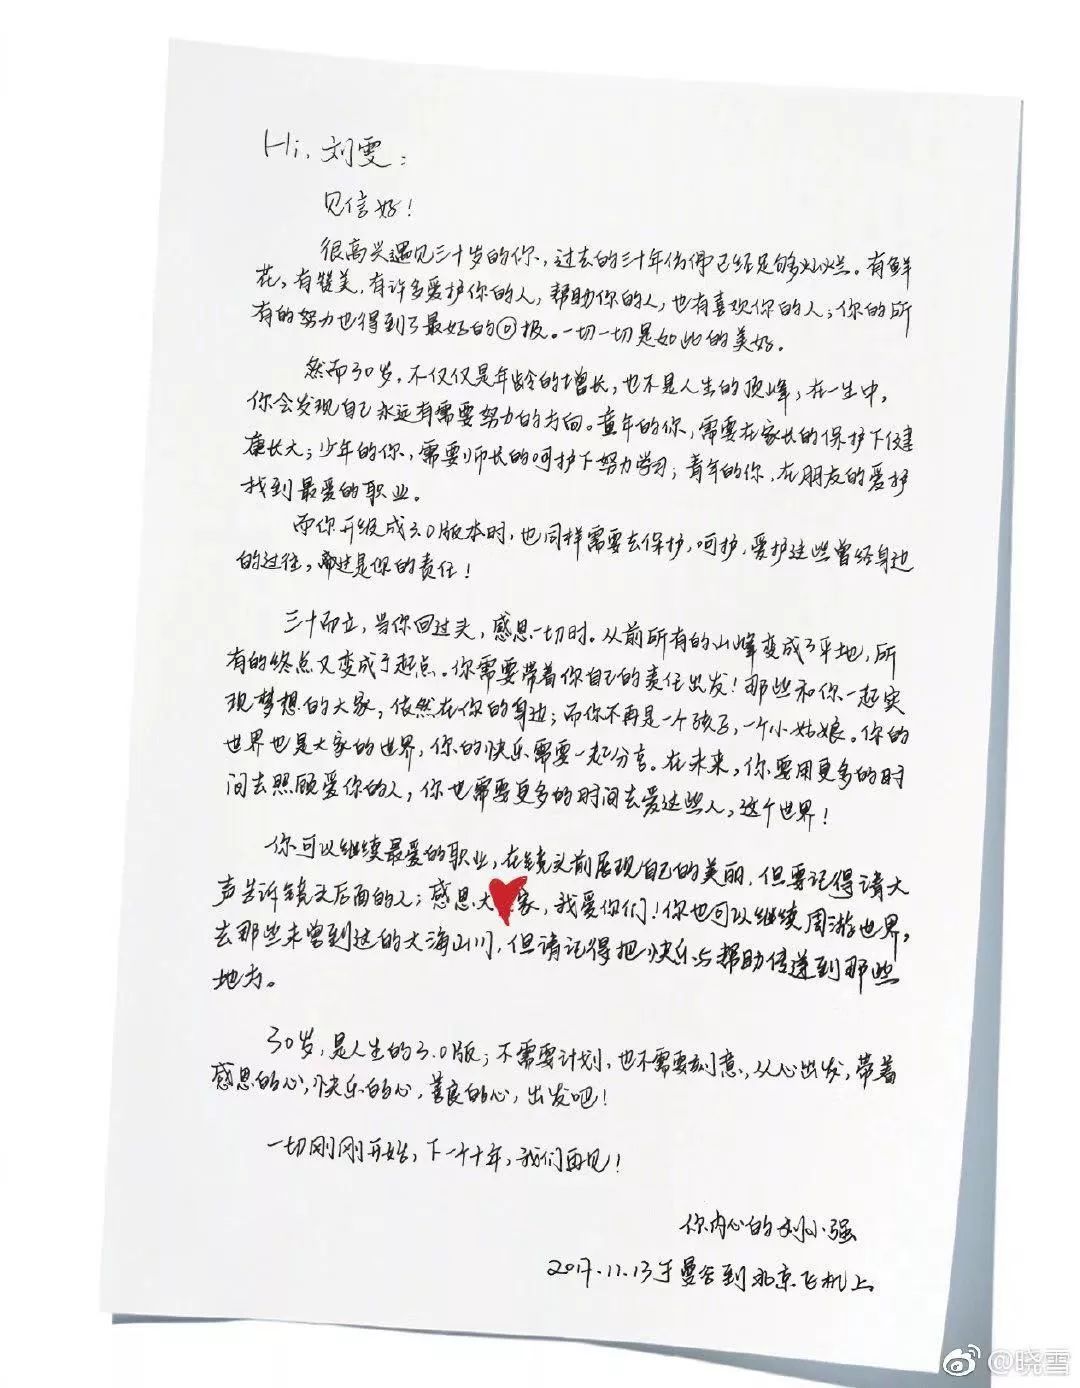 Hi，刘雯：
见信好！
很高兴遇见三十岁的你，过去的三十年仿佛已经足够灿烂。有鲜
花，有赞美，有许多爱护你的人，帮助你的人，也有喜欢你的人；你的所
有的努力也得到了最好的回报。一切一切是如此的美好。
然而30岁，不仅仅是年龄的增长，也不是人生的顶峰，在一生中，
你会发现自己永远有需要努力的方向。童年的你，需要在家长的保护下健
康长大；少年的你，需要师长的呵护下努力学习；青年的你，在朋友的爱护
找到最爱的职业。
而你升级成3.0版本时，也同样需要去保护，呵护，爱护这些曾经身边
的过往，都是你的责任！
三十而立，当你回过头，感恩一切时。从前所有的山峰变成了平地，所
有的终点又变成了起点。你需要带着你自己的责任出发！那些和你一起实
现梦想的大家，依然在你的身边；而你不再是一个孩子，一个小姑娘。你的
世界也是大家的世界，你的快乐需要一起分享。在未来，你要用更多的时
间去照顾爱你的人，你也需要更多的时间去爱这些人，这个世界！
你可以继续最爱的职业，在镜头前展现自己的美丽，但要记得请大
声告诉镜头后面的人；感恩大家，我爱你们！你也可以继续周游世界，
去那些未曾到达的大海山川，但请记得把快乐与帮助传递到那些
地方。
30岁，是人生的3.0版；不需要计划，也不需要刻意，从心出发，带着
感恩的心，快乐的心，善良的心，出发吧！
一切刚刚开始，下一个十年，我们再见！
你内心的刘小强
2017.11.13于曼谷到北京飞机上
@晓雪